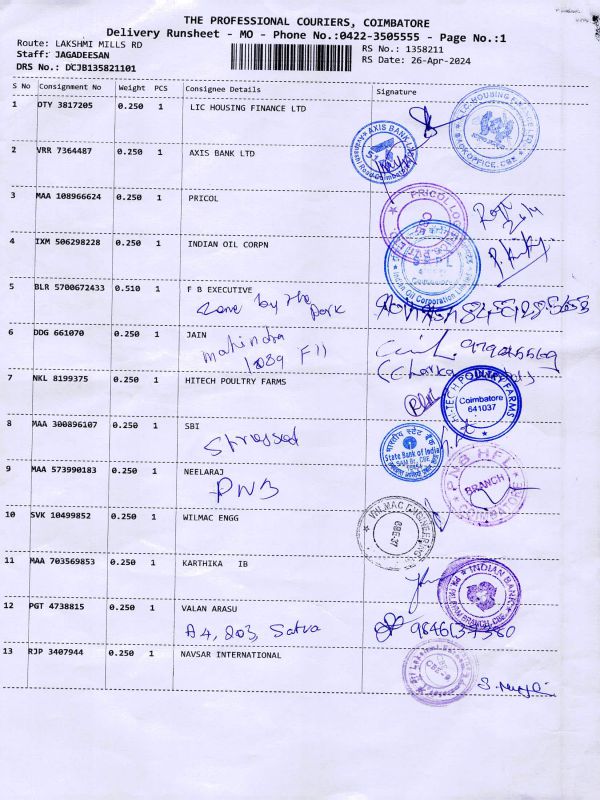 THE PROFESSIONAL COURIERS, COIMBATORE
Delivery Runsheet - MO - Phone No.:0422-3505555 - Page No.:1
Route: LAKSHMI MILLS RD
Staff: JAGADEESAN
DRS No.: DCJB135821101
RS No.: 1358211
RS Date: 26-Apr-2024
S No Consignment No Weight PCS Consignee Details Signature
1 OTY 3817205 0.250 1 LIC HOUSING FINANCE LTD
2 VRR 7364487 0.250 1 AXIS BANK LTD
AXIS BANK
3 MAA 108966624 0.250 1 PRICOL
PRICOL
4 IXM 506298228 0.250 1 INDIAN OIL CORPN
Indian Oil Corporation
5 BLR 5700672433 0.510 1 F B EXECUTIVE
by the Park
6 DDG 661070 0.250 1 JAIN
mahindra
1039 F11
7 NKL 8199375 0.250 1 HITECH POULTRY FARMS
HI-TECH POULTRY FARMS
Coimbatore
641037
8 MAA 300896107 0.250 1 SBI
Stressed
भारतीय स्टेट बैंक
State Bank of India
9 MAA 573990183 0.250 1 NEELARAJ
PNB
PNB HFL
BRANCH
COIMBATORE
10 SVK 10499852 0.250 1 WILMAC ENGG
WILMAC ENGINEERING
11 MAA 703569853 0.250 1 KARTHIKA IB
INDIAN BANK
12 PGT 4738815 0.250 1 VALAN ARASU
A4, 203, Satva
13 RJP 3407944 0.250 1 NAVSAR INTERNATIONAL